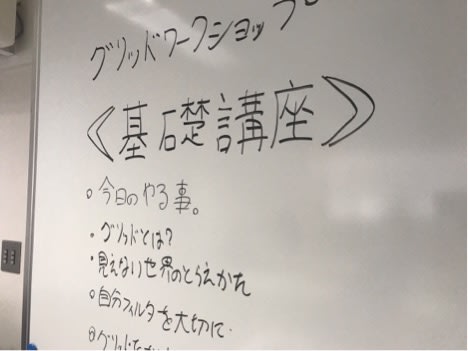 グリッドワークショップ
《基礎講座》
○今日のやる事。
・グリッドとは?
・見えない世界のとらえかた
○自分フィルタを大切に・